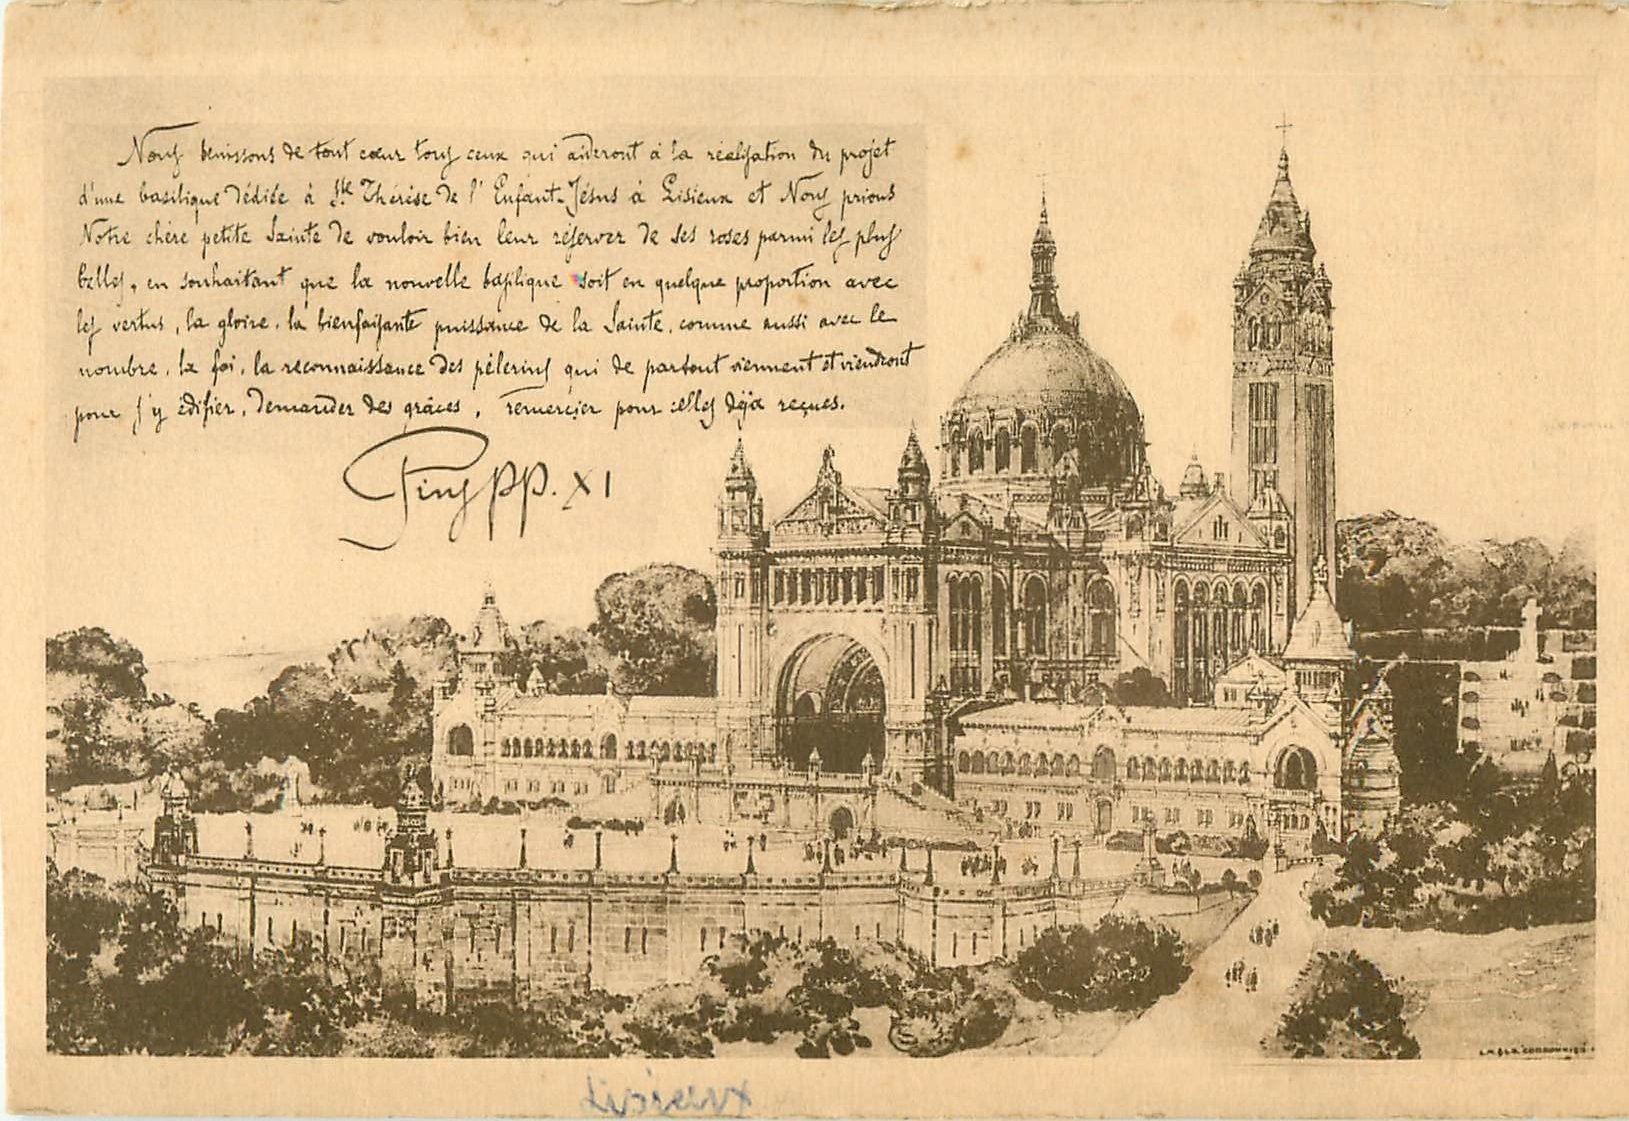 Nous bénissons de tout cœur tous ceux qui aideront à la réalisation du projet
d'une basilique dédiée à Ste Thérèse de l'Enfant-Jésus à Lisieux et Nous prions
Notre chère petite Sainte de vouloir bien leur réserver de ses roses parmi les plus
belles, en souhaitant que la nouvelle basilique soit en quelque proportion avec
les vertus, la gloire, la bienfaisante puissance de la Sainte, comme aussi avec le
nombre, la foi, la reconnaissance des pélerins qui de partout viennent et viendront
pour s'y édifier, demander des grâces, remercier pour celles déjà reçues.
Pius PP. XI
Lisieux